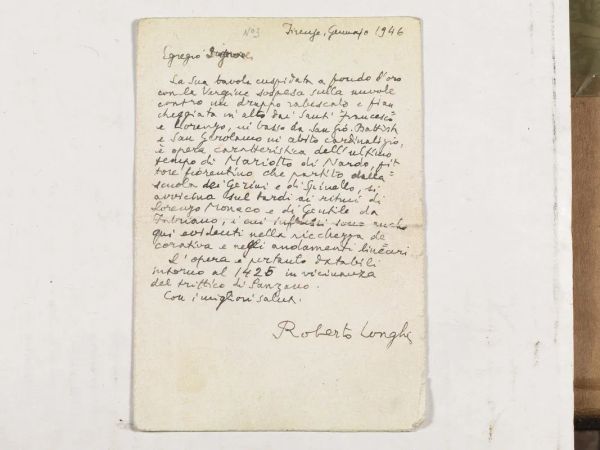 No3
Firenze, Gennaio 1946
Egregio Signore,
La Sua tavola cuspidata a fondo d'oro
con la Vergine sospesa sulla nuvole
contro un drappo rabescato e fian
cheggiata in alto dai Santi Francesco
e Lorenzo, in basso da San Gio. Battista
e San Gerolamo in abito cardinalizio,
è opera caratteristica dell'ultimo
tempo di Mariotto di Nardo, pit=
tore fiorentino che partito dalla
scuola dei Gerini e di Spinello, si
avvicina sul tardi ai ritmi di
Lorenzo Monaco e di Gentile da
Fabriano, i cui influssi sono anche
qui evidenti nella ricchezza de
corativa e negli andamenti lineari.
L'opera è pertanto databili
intorno al 1425 in vicinanza
del trittico di Panzano.
Con i migliori saluti.
Roberto Longhi